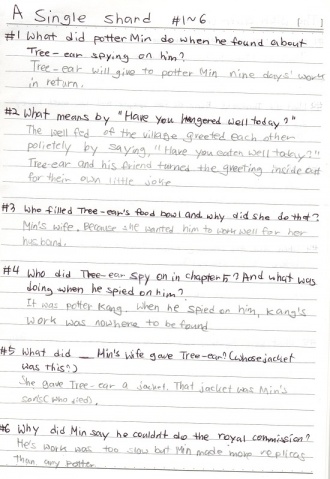 A Single Shard #1~6
#1 What did potter Min do when he found about
Tree-ear spying on him?
Tree-ear will give to potter Min nine days' work
in return.
#2 What means by "Have you hungered well today?"
The well fed of the village greeted each other
polietely by saying, "Have you eaten well today?"
Tree-ear and his friend turned the greeting inside out
for their own little joke
#3 Who filled Tree-ear's food bowl and why did she do that?
Min's wife. Because she wanted him to work well for her
husband.
#4 Who did Tree-ear spy on in chapter 5? And what was
doing when he spied on him?
It was potter Kang. When he spied on him, Kang's
work was nowhere to be found.
#5 What did __ Min's wife gave Tree-ear? (Whose jacket
was this?)
She gave Tree-ear a jacket. That jacket was Min's
son's (who died).
#6 Why did Min say he couldn't do the royal commission?
He's work was too slow but Min made more replicas
than any potter.